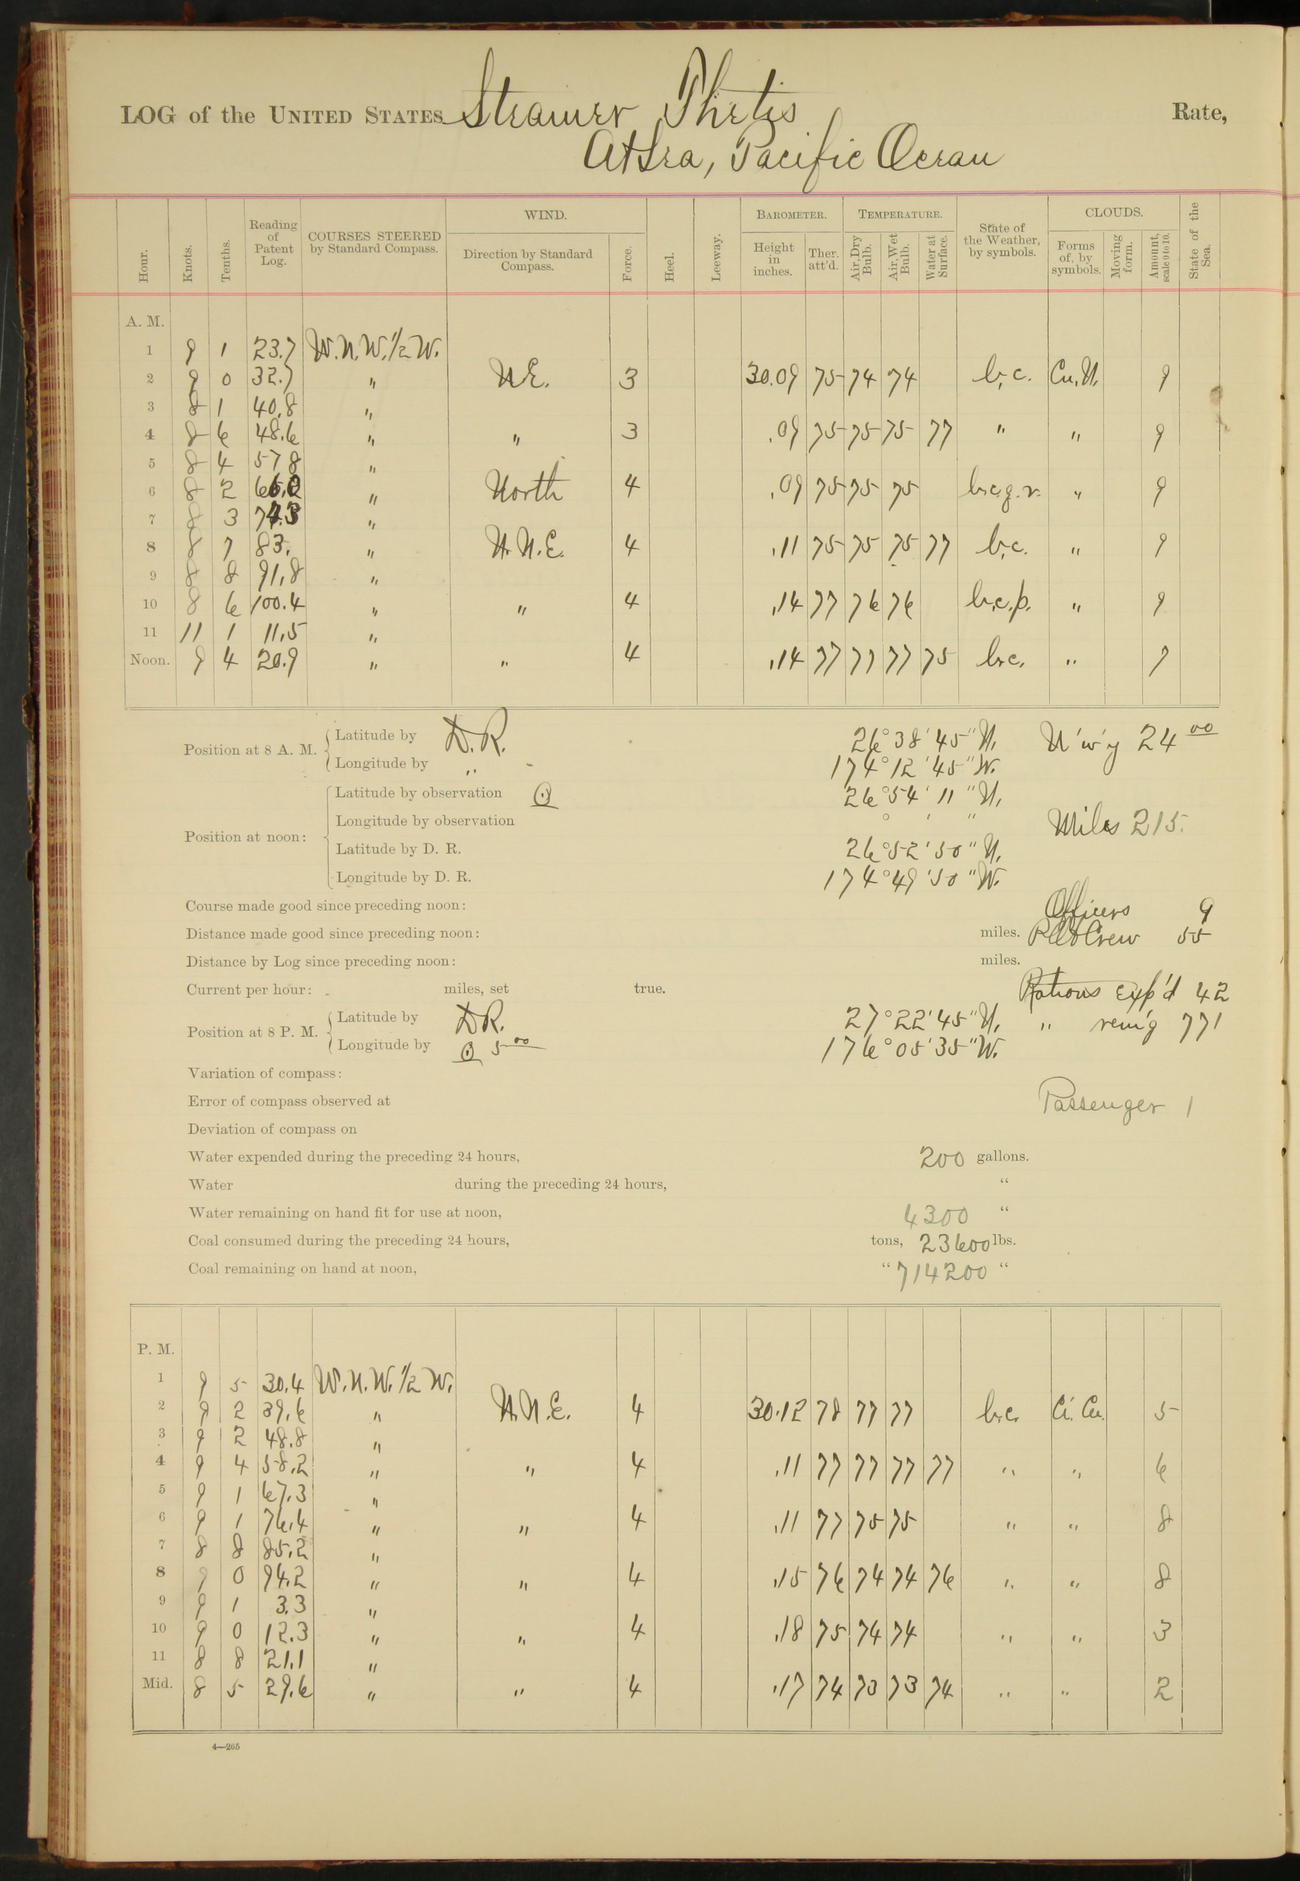 LOG of the UNITED STATES Steamer Thetis Rate,
At Sea, Pacific Ocean
Hour. Knots. Tenths. Reading of Patent Log. COURSES STEERED by Standard Compass. WIND. Direction by Standard Compass. Force. Heel. Leeway. BAROMETER. Height in inches. Ther. att'd. TEMPERATURE. Air, Dry Bulb. Air, Wet Bulb. Water at Surface. State of the Weather, by symbols. CLOUDS. Forms of, by symbols. Moving form. Amount, scale 0 to 10. State of the Sea.
A. M.
1 9 1 23.7 W.N.W.1/2 W.
2 9 0 32.7 " N.E. 3 30.09 75 74 74 b.c. Cu.N. 9
3 8 1 40.8 "
4 8 6 48.6 " " 3 .09 75 75 75 77 " " 9
5 8 4 57 8 "
6 8 2 66.0 " North 4 .09 75 75 75 b.c.q.r. " 9
7 8 3 74.3 "
8 8 7 83. " N.N.E. 4 .11 75 75 75 77 b.c. " 9
9 8 8 91.8 "
10 8 6 100.4 " " 4 .14 77 76 76 b.c.p. " 9
11 11 1 11.5 "
Noon. 9 4 20.9 " " 4 .14 77 77 77 75 b.c. " 7
Position at 8 A. M. Latitude by D.R. 26° 38' 45" N. N'w'y 24 00
Longitude by " 174° 12' 45" W.
Position at noon: Latitude by observation ☉ 26° 54' 11" N.
Longitude by observation ° ' " Miles 215.
Latitude by D. R. 26° 52' 50" N.
Longitude by D. R. 174° 49' 50" W.
Course made good since preceding noon: Officers 9
Distance made good since preceding noon: miles. Crew 55
Distance by Log since preceding noon: miles.
Current per hour: miles, set true. Rations exp'd 42
Position at 8 P. M. Latitude by D.R. 27° 22' 45" N. " rem'g 771
Longitude by ☉ 5 00 176° 05' 35" W.
Variation of compass:
Error of compass observed at Passenger 1
Deviation of compass on
Water expended during the preceding 24 hours, 200 gallons.
Water during the preceding 24 hours, "
Water remaining on hand fit for use at noon, 4300 "
Coal consumed during the preceding 24 hours, tons, 23600 lbs.
Coal remaining on hand at noon, " 714200 "
P. M.
1 9 5 30.4 W.N.W. 1/2 W.
2 9 2 39.6 " N.N.E. 4 30.12 78 77 77 b.c. Ci. Cu. 5
3 9 2 48.8 "
4 9 4 58.2 " " 4 .11 77 77 77 77 " " 6
5 9 1 67.3 "
6 9 1 76.4 " " 4 .11 77 75 75 " " 8
7 8 8 85.2 "
8 9 0 94.2 " " 4 .15 76 74 74 76 " " 8
9 9 1 3.3 "
10 9 0 12.3 " " 4 .18 75 74 74 " " 3
11 8 8 21.1 "
Mid. 8 5 29.6 " " 4 .17 74 73 73 74 " " 2
4—265